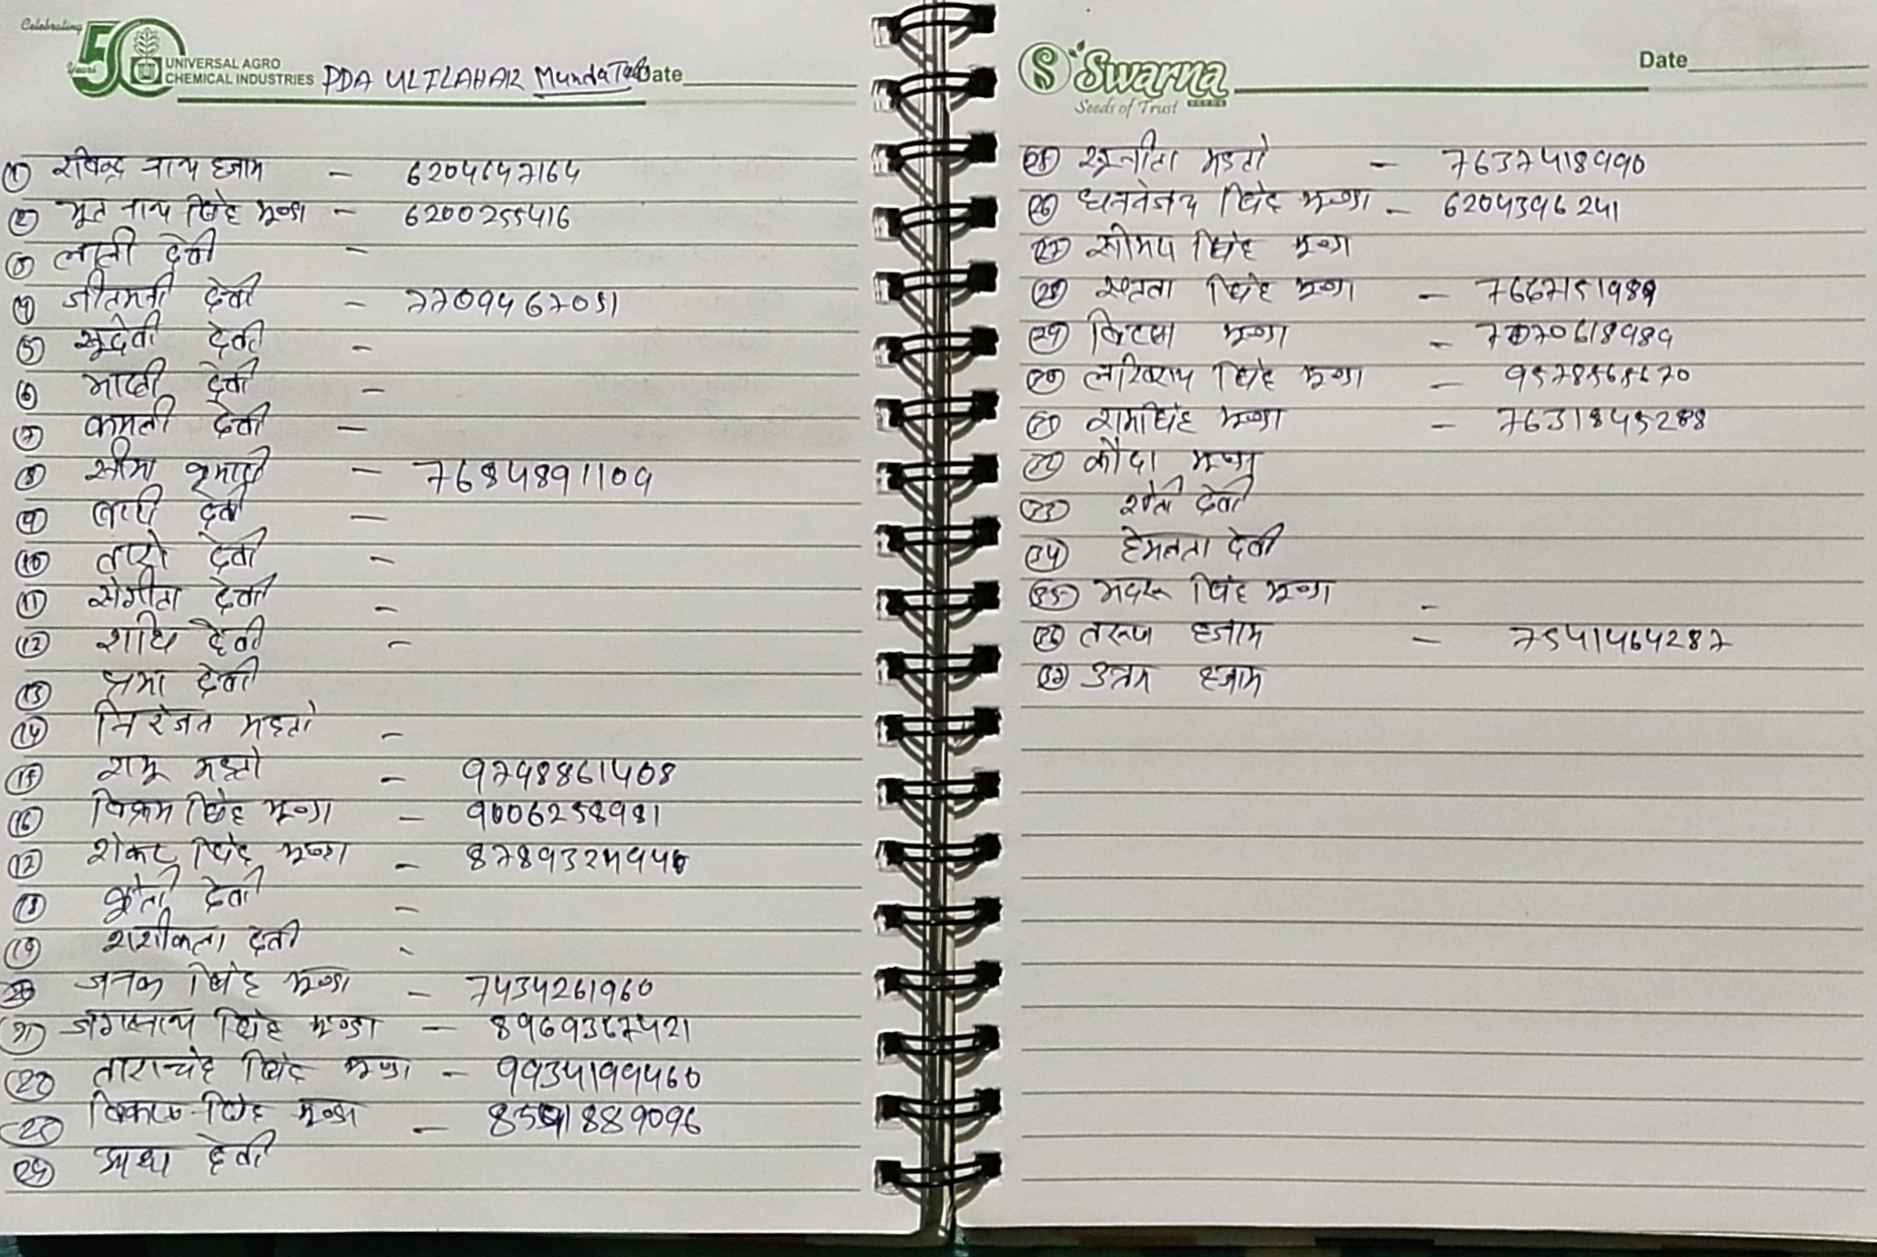 Celebrating
50 Years
UNIVERSAL AGRO
CHEMICAL INDUSTRIES PDA ULILAHAR Munda Tola Date
① रविन्द्र नाथ हजाम - 6204647164
② भूत नाथ सिंह मुण्डा - 6200255416
③ लाली देवी -
④ जीतमनी देवी - 7709467051
⑤ सूदेवी देवी -
⑥ माही देवी -
⑦ कमली देवी -
⑧ सीमा कुमारी - 7684891109
⑨ देवी -
⑩ तारो देवी -
⑪ संगीता देवी -
⑫ शांति देवी -
⑬ प्रभा देवी
⑭ निरंजन महतो -
⑮ रामू महतो - 9748861408
⑯ विक्रम सिंह मुण्डा - 9006258981
⑰ शंकर सिंह मुण्डा -
⑱ कुंती देवी -
⑲ शशीकला देवी -
⑳ जनक सिंह मुण्डा - 7434261960
㉑ जगरनाथ सिंह मुण्डा - 8969367421
㉒ ताराचंद सिंह मुण्डा - 9934199460
㉓ विकास सिंह मुण्डा -
㉔ आशा देवी
Swarna
Seeds of Trust
SEEDS
Date
㉕ सुनीता महतो - 7637418990
㉖ धनंजय सिंह मुण्डा - 6204396241
㉗ सोमय सिंह मुण्डा
㉘ सिंह मुण्डा - 7667151989
㉙ मुण्डा - 7070618989
㉚ सिंह मुण्डा - 9578565670
㉛ रामसिंह मुण्डा - 7631845288
㉜ कौदा मुण्डा
㉝ देवी
㉞ हेमलता देवी
㉟ सिंह मुण्डा -
㊱ तरुण हजाम - 7541464287
㊲ उत्तम हजाम